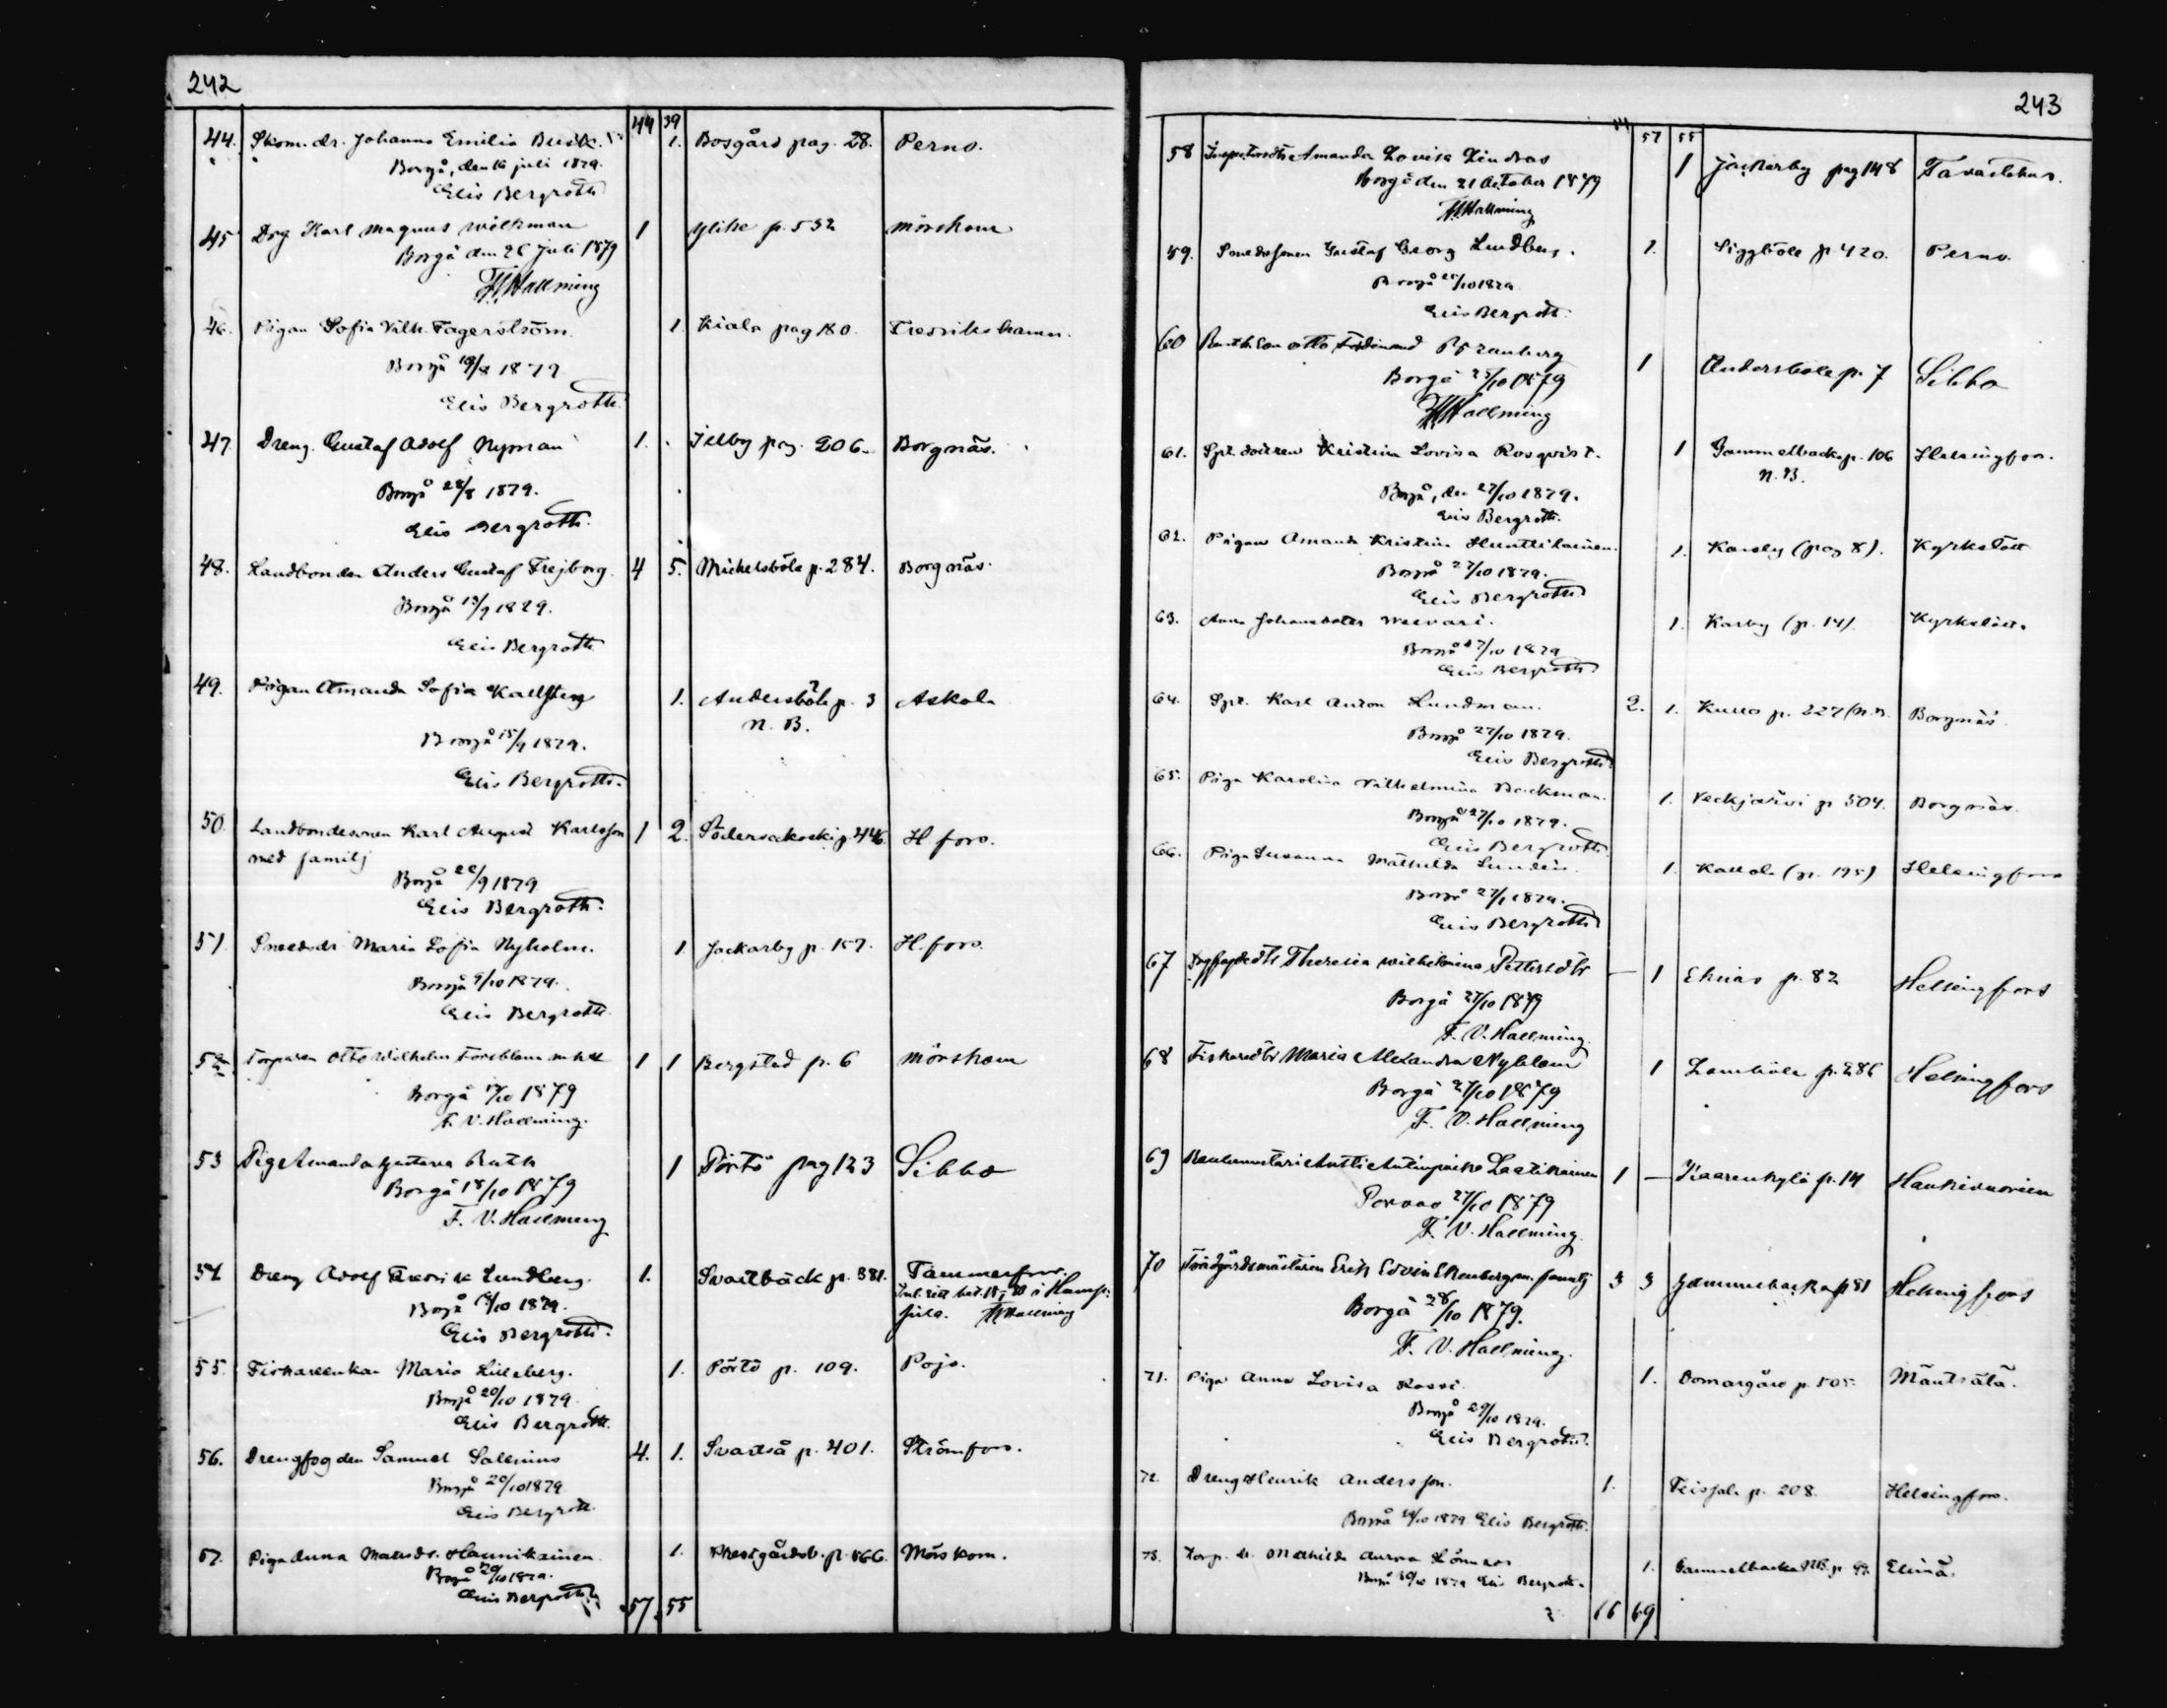 242
44 39
44. Skom. dr. Johanna Emilia Busk. 1. Bosgård pag. 28. Perno.
Borgå, den 16 juli 1879.
Elis Bergroth
45 Drg Karl Magnus Wilkman 1 ylike p. 532 Mörskom
Borgå den 26 Juli 1879
F.V. Hallming
46. Pigan Sofia Vilh. Fagerström. 1. Kiala pag 180. Fredrikshamn.
Borgå 18/8 1879
Elis Bergroth.
47. Dreng. Gustaf Adolf Nyman 1. Illby pag. 206. Borgnäs.
Borgå 28/8 1879.
Elis Bergroth.
48. Landbonden Anders Gustaf Frejborg. 4 5. Mickelsböle p. 284. Borgnäs.
Borgå 13/9 1879.
Elis Bergroth
49. Pigan Amanda Sofia 1. Andersböle p. 3 Askola
N. B.
Borgå 15/9 1879.
Elis Bergroth.
50. Landbondesonen Karl August Karlsson 1 2. Söderveckoski p. 446. H.fors.
med familj
Borgå 20/9 1879
Elis Bergroth.
51. Smedsdr Maria Sofia Nyholm. 1 Jackarby p. 157. H.fors.
Borgå 9/10 1879.
Elis Bergroth.
52 Torparen Otto Wilhelm Forsblom 1 1 Bergstad p. 6 Mörskom
Borgå 17/10 1879
F. V. Hallming.
53 Piga Amanda Gustava Ruth 1 Pörtö pag 123 Sibbo
Borgå 18/10 1879
F. V. Hallming
54 Dreng Adolf Fredrik Lundberg. 1. Svartbäck p. 381. Tammerfors.
Hallming
Borgå 18/10 1879.
Elis Bergroth.
55. Fiskareenkan Maria Liljeberg. 1. Pörtö p. 109. Pojo.
Borgå 20/10 1879.
Elis Bergroth.
56. Drengfogden Samuel Salenius 4. 1. Svartså p. 401. Strömfors.
Borgå 20/10 1879
Elis Bergroth.
57. Piga Anna Matsdr. Hannikainen. 1. Prestgårdsb. p. 566. Mörskom.
Borgå 20/10 1879.
Elis Bergroth
57. 55
243
57 55
58 Amanda Lovisa Lindroos 1 Jackarby pag 148 Tavastehus.
Borgå den 21 October 1879
F.V. Hallming
59. Smedssonen Gustaf Georg Lindberg. 1. Siggböle p. 420. Perno.
Borgå 25/10 1879
Elis Bergroth.
60 Otto Ferdinand 1 Andersböle p. 7 Sibbo
Borgå 25/10 1879
F.V. Hallming
61. Spt. dottren Kristina Lovisa Rosqvist. 1 Gammelbacka p. 106 Helsingfors.
N. B.
Borgå, den 27/10 1879.
Elis Bergroth.
62. Pigan Amanda Kristina Hunttilainen. 1. Karsby (pag 8). Kyrkslätt
Borgå 27/10 1879.
Elis Bergroth
63. Anna Johansdoter 1. Karby (p. 14). Kyrkslätt.
Borgå 27/10 1879
Elis Bergroth
64. Spt. Karl Anton Lundman. 2. 1. Kullo p. 227 (N.B. Borgnäs
Borgå 27/10 1879.
Elis Bergroth
65. Piga Karolina Vilhelmina Backman. 1. Veckjärvi p. 504. Borgnäs.
Borgå 27/10 1879.
Elis Bergroth.
66. Piga Susanna Mathilda Lundin. 1. Kallola (p. 195) Helsingfors
Borgå 27/10 1879.
Elis Bergroth
67 Theresia Wilhelmina Pettersdtr — 1 Eknäs p. 82 Helsingfors
Borgå 27/10 1879
F. V. Hallming.
68 Fiskaredtr Maria Alexandra Nyblom 1 p. 286 Helsingfors
Borgå 27/10 1879
F. V. Hallming
69 Antti Antinpoika Laatikainen 1 — Kaarenkylä p. 14 Haukivuoreen
Porvoo 27/10 1879
F. V. Hallming.
70 Trädgårdsmästaren Erik Edvin Ekenberg m. familj 3 3 Gammelbacka p 81 Helsingfors
Borgå 28/10 1879.
F. V. Hallming.
71. Piga Anna Lovisa Rossi. 1. Domargård p. 505. Mäntsälä.
Borgå 29/10 1879.
Elis Bergroth.
72. Dreng Henrik Andersson. 1. Teissala p. 208. Helsingfors.
Borgå 29/10 1879 Elis Bergroth.
73. Torp. dr. Mathilda Aurora Lönnroos 1. Gammelbacka NB. p. 99. Elimä.
Borgå 30/10 1879 Elis Bergroth.
66 69